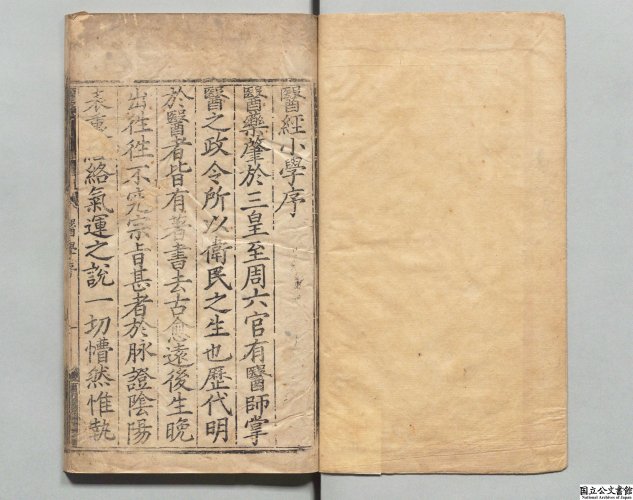 醫經小學序
醫藥肇於三皇至周六官有醫師掌
醫之政令所以衛民之生也歷代明
於醫者皆有著書去古愈遠後生晚
出徃徃不究宗旨甚者於脉證陰陽
表裏經絡氣運之說一切懵然惟執
醫學序
一
国立公文書館
National Archives of Japan